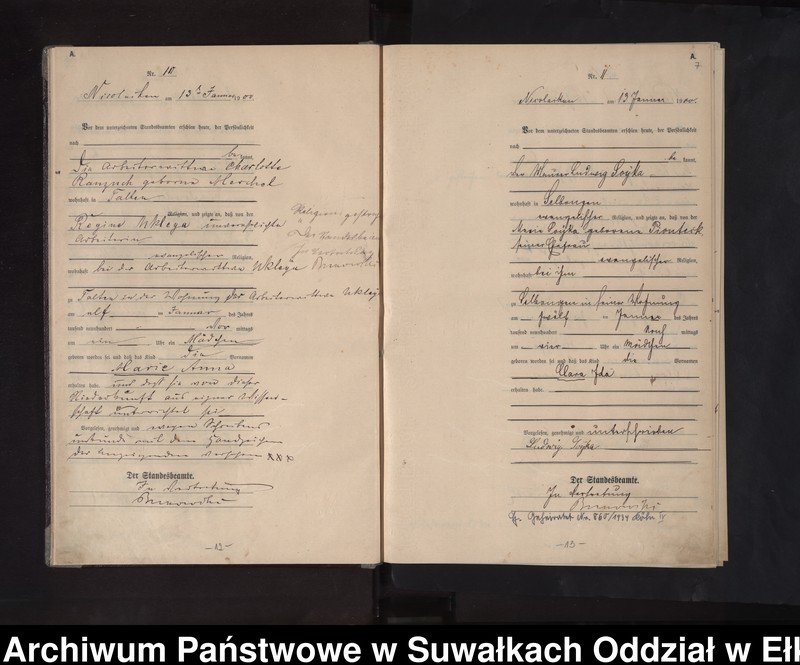 A.
Nr. 10
Nicolaiken am 13ten Januar 1900
Vor dem unterzeichneten Standesbeamten erschien heute, der Persönlichkeit
nach
be kannt,
Die Arbeiterwittwe Charlotte
geborne
wohnhaft in Talten
Religion, und zeigte an, daß von der
Regine Uklega unverehelichte
Arbeiterin
evangelischer Religion,
wohnhaft bei der Arbeiterwittwe Uklega
zu Talten in der Wohnung der Arbeiterwittwe
am elf ten Januar des Jahres
tausend neunhundert Vor mittags
um ein Uhr ein Mädchen
geboren worden sei und daß das Kind die Vornamen
Marie Anna
erhalten habe und daß sie von dieser
Niederkunft aus eigner Wissen-
schaft unterrichtet sei
Vorgelesen, genehmigt und wegen Schreibens
unkunde mit dem Handzeichen
der Anzeigenden versehen xxx
Der Standesbeamte.
In Vertretung
Religion, gestrichen
Der Standesbeamte
In Vertretung
—12—
A.
7
Nr. 11
Nicolaiken am 13 Januar 1900.
Vor dem unterzeichneten Standesbeamten erschien heute, der Persönlichkeit
nach
be kannt,
der Maurer Ludwig Soyka
wohnhaft in Selbongen
evangelischer Religion, und zeigte an, daß von der
Marie Soyka geborene Pionteck
seiner Ehefrau
evangelischer Religion,
wohnhaft bei ihm
zu Selbongen in seiner Wohnung
am zwölf ten Januar des Jahres
tausend neunhundert Nach mittags
um vier Uhr ein Mädchen
geboren worden sei und daß das Kind die Vornamen
Clara Ida
erhalten habe.
Vorgelesen, genehmigt und unterschrieben
Ludwig Soyka
Der Standesbeamte.
In Vertretung
Geheiratet No. 865/1934 Köln
—13—
Archiwum Państwowe w Suwałkach Oddział w Ełk